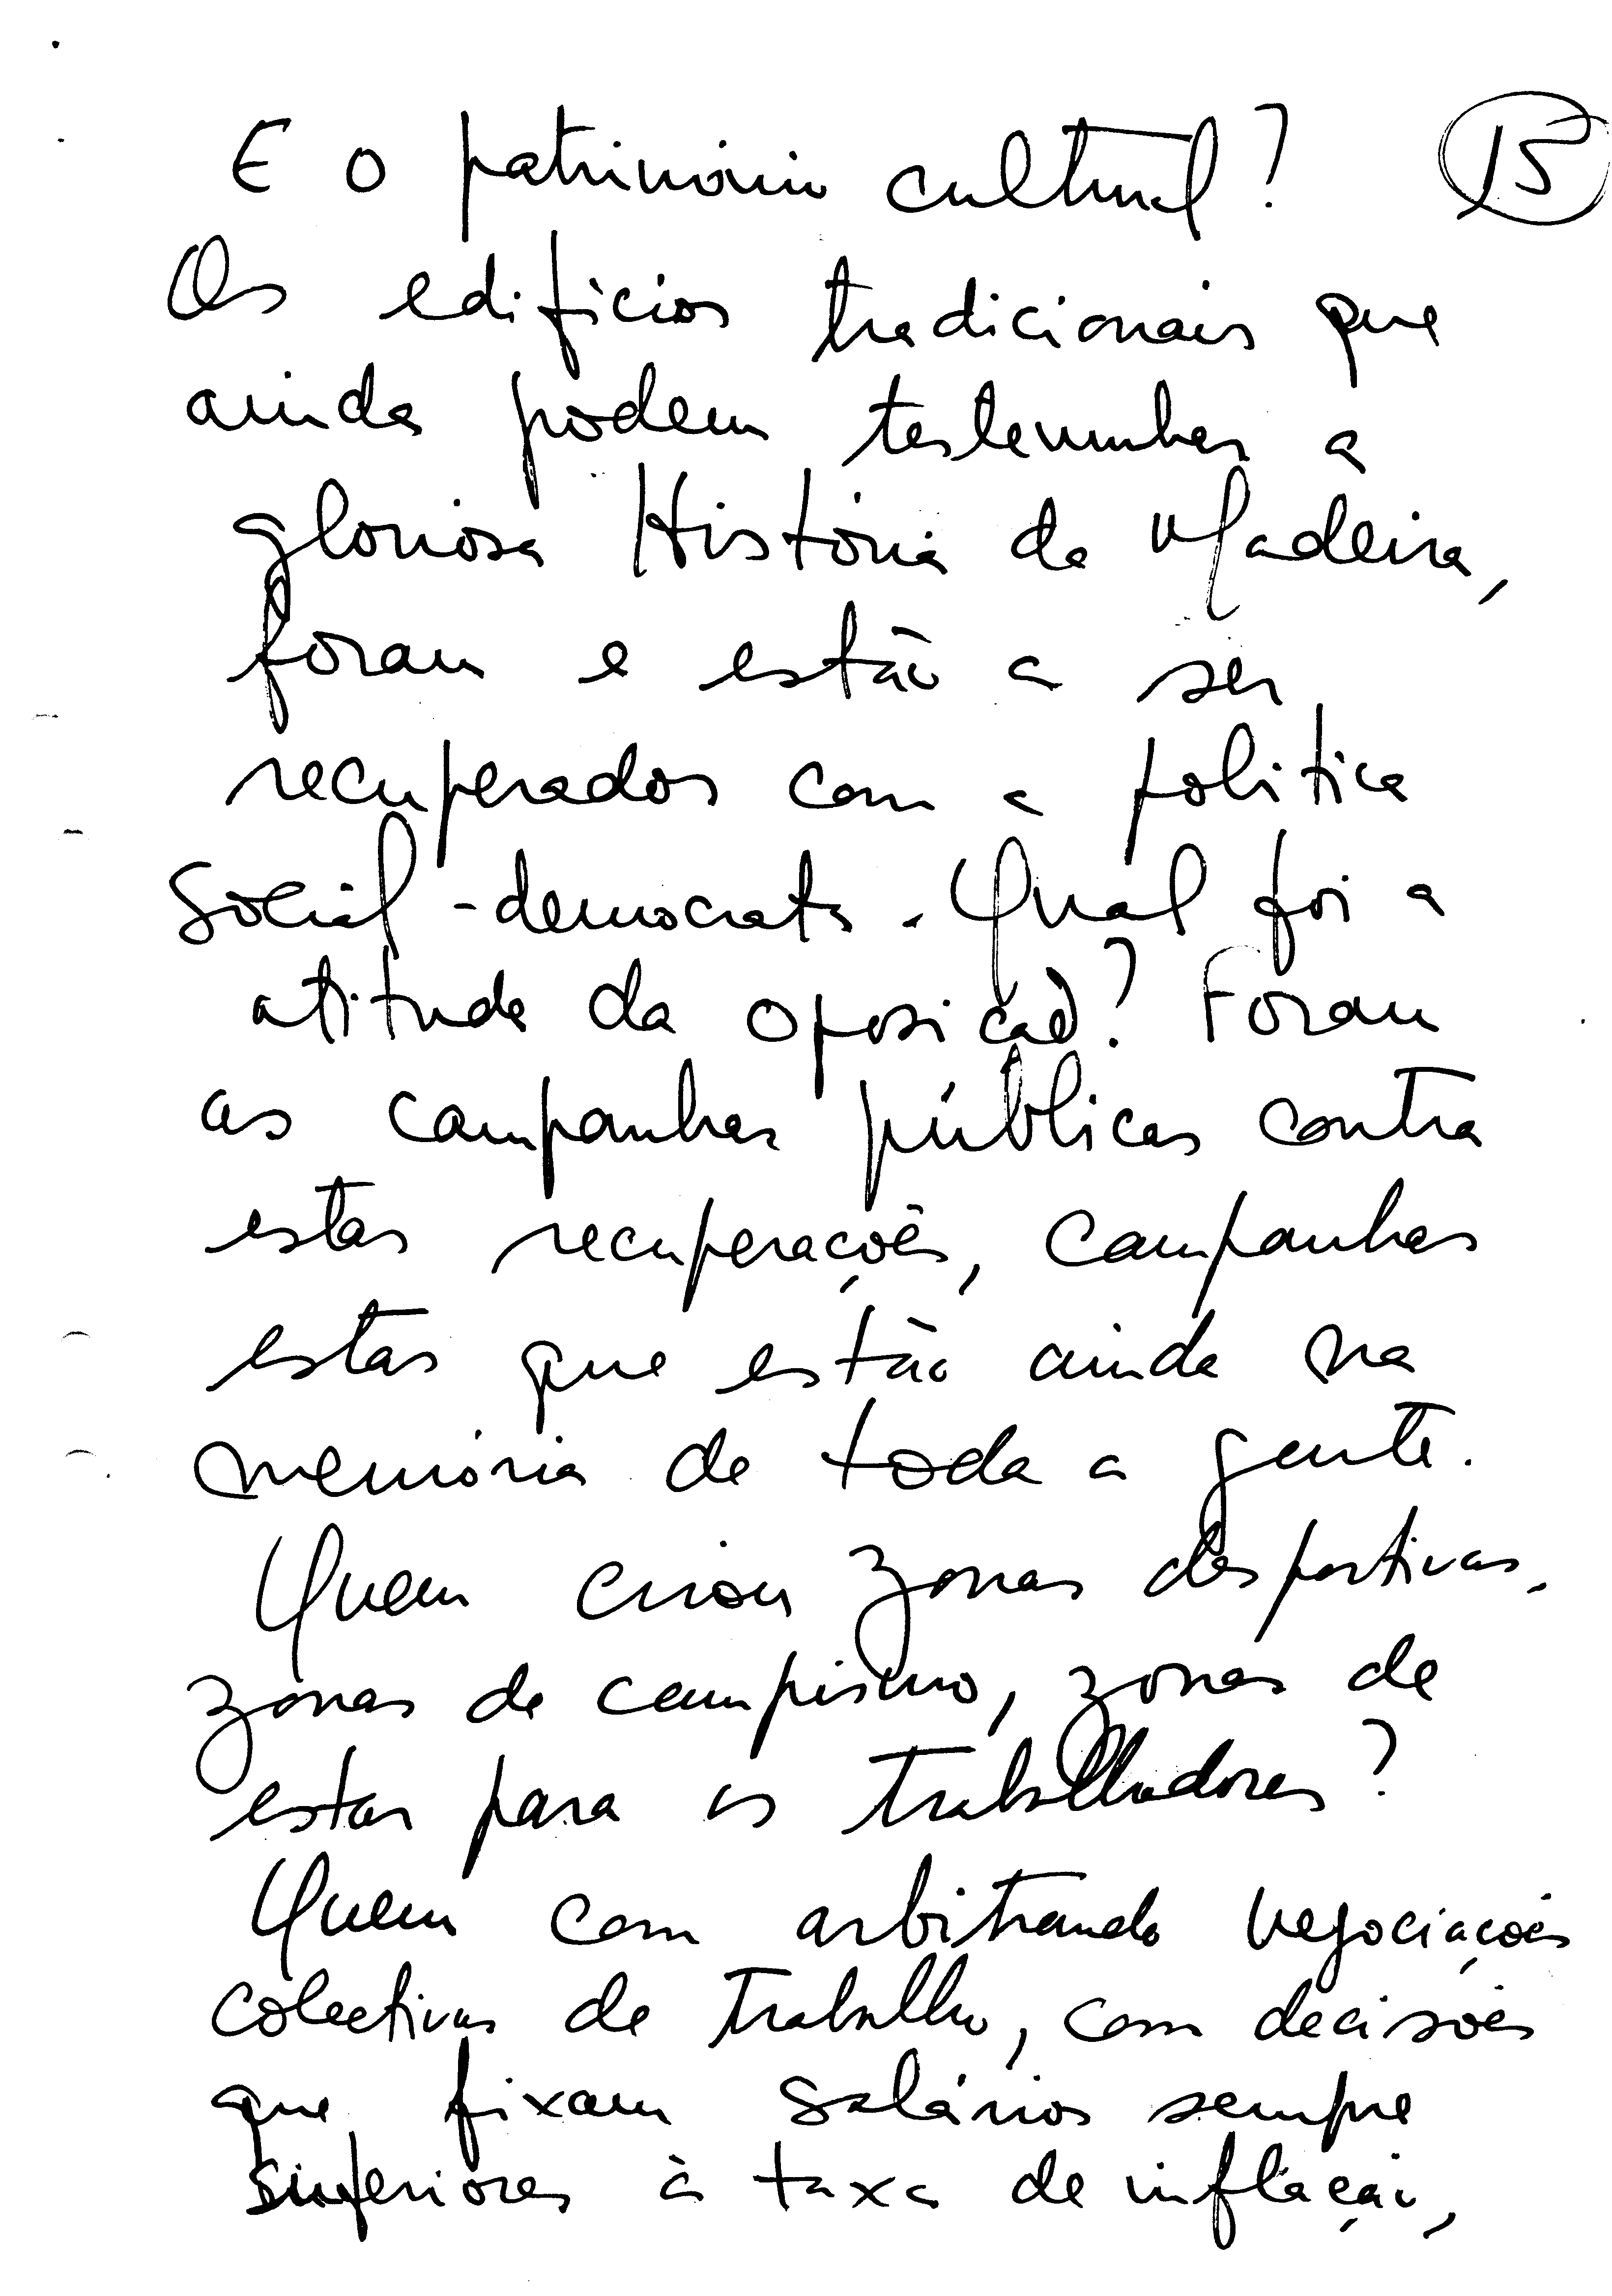 E o património cultural? 15
Os edifícios tradicionais que
ainda podem testemunhar a
gloriosa História da Madeira,
foram e estão a ser
recuperados com a política
social-democrata. Qual foi a
atitude da oposição? Foram
as campanhas públicas contra
estas recuperações, campanhas
estas que estão ainda na
memória de toda a gente.
Quem criou zonas desportivas,
zonas de campismo, zonas de
estar para os trabalhadores?
Quem com arbitrando negociações
colectivas de trabalho, com decisões
que fixam salários sempre
superiores à taxa de inflação,